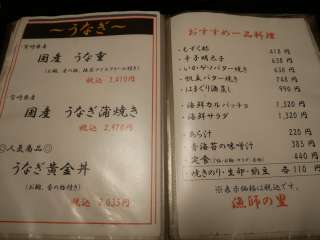 ～うなぎ～
宮崎県産
国産 うな重
税込 2,970円
宮崎県産
国産 うなぎ蒲焼き
税込 2,470円
◎人気商品◎
うなぎ黄金丼
(お椀、香の物付き)
税込 2,035円
おすすめ一品料理
・もずく酢 418円
・辛子明太子 638円
・いかゲソバター焼き 638円
・帆立バター焼き 748円
・はまぐり酒蒸し 990円
・海鮮カルパッチョ 1,320円
・海鮮サラダ 1,320円
・あら汁 220円
・青海苔の味噌汁 385円
・定食 440円
・焼きのり・生卵・納豆 各110円
※表示価格は税込です。
漁師の里